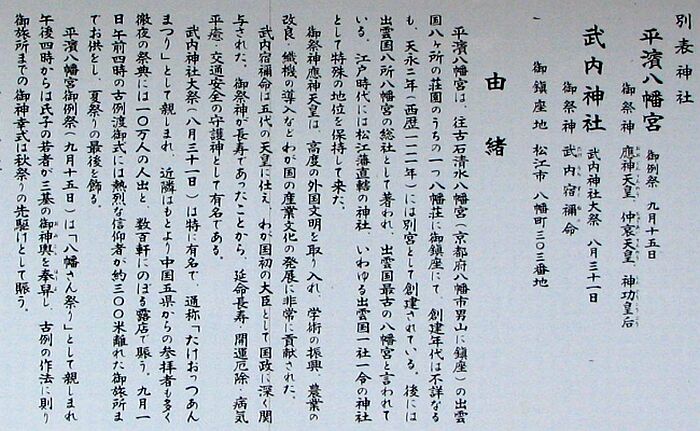 別表神社
平濱八幡宮 御例祭 九月十五日
御祭神 應神天皇 仲哀天皇 神功皇后
武内神社 武内神社大祭 八月三十一日
御祭神 武内宿禰命
御鎮座地 松江市八幡町三〇三番地
由緒
平濱八幡宮は、往古石清水八幡宮(京都府八幡市男山に鎮座)の出雲
国八ヶ所の荘園のうちの一つ八幡荘に御鎮座にて、創建年代は不詳なる
も、天永二年(西歴一一一一年)には別宮として創建されている。後には
出雲国八所八幡宮の総社として著われ、出雲国最古の八幡宮と言われて
いる。江戸時代には松江藩直轄の神社、いわゆる出雲国一社一令の神社
として特殊の地位を保持して来た。
御祭神應神天皇は、高度の外国文明を取り入れ、学術の振興、農業の
改良・織機の導入などわが国の産業文化の発展に非常に貢献された。
武内宿禰命は五代の天皇に仕え、わが国初の大臣として国政に深く関
与された。御祭神が長寿であったことから、延命長寿・開運厄除・病気
平癒・交通安全の守護神として有名である。
武内神社大祭(八月三十一日)は特に有名で、通称「たけおっつあん
まつり」として親しまれ、近隣はもとより中国五県からの参拝者も多く
徹夜の祭典には一〇万人の人出と、数百軒にのぼる露店で賑う。九月一
日午前四時の古例渡御式には熱烈な信仰者が約三〇〇米離れた御旅所ま
でお供をし、夏祭りの最後を飾る。
平濱八幡宮御例祭(九月十五日)は「八幡さん祭り」として親しまれ
午後四時からは氏子の若者が三基の御神輿を奉舁し、古例の作法に則り
御旅所までの御神幸式は秋祭りの先駆けとして賑う。